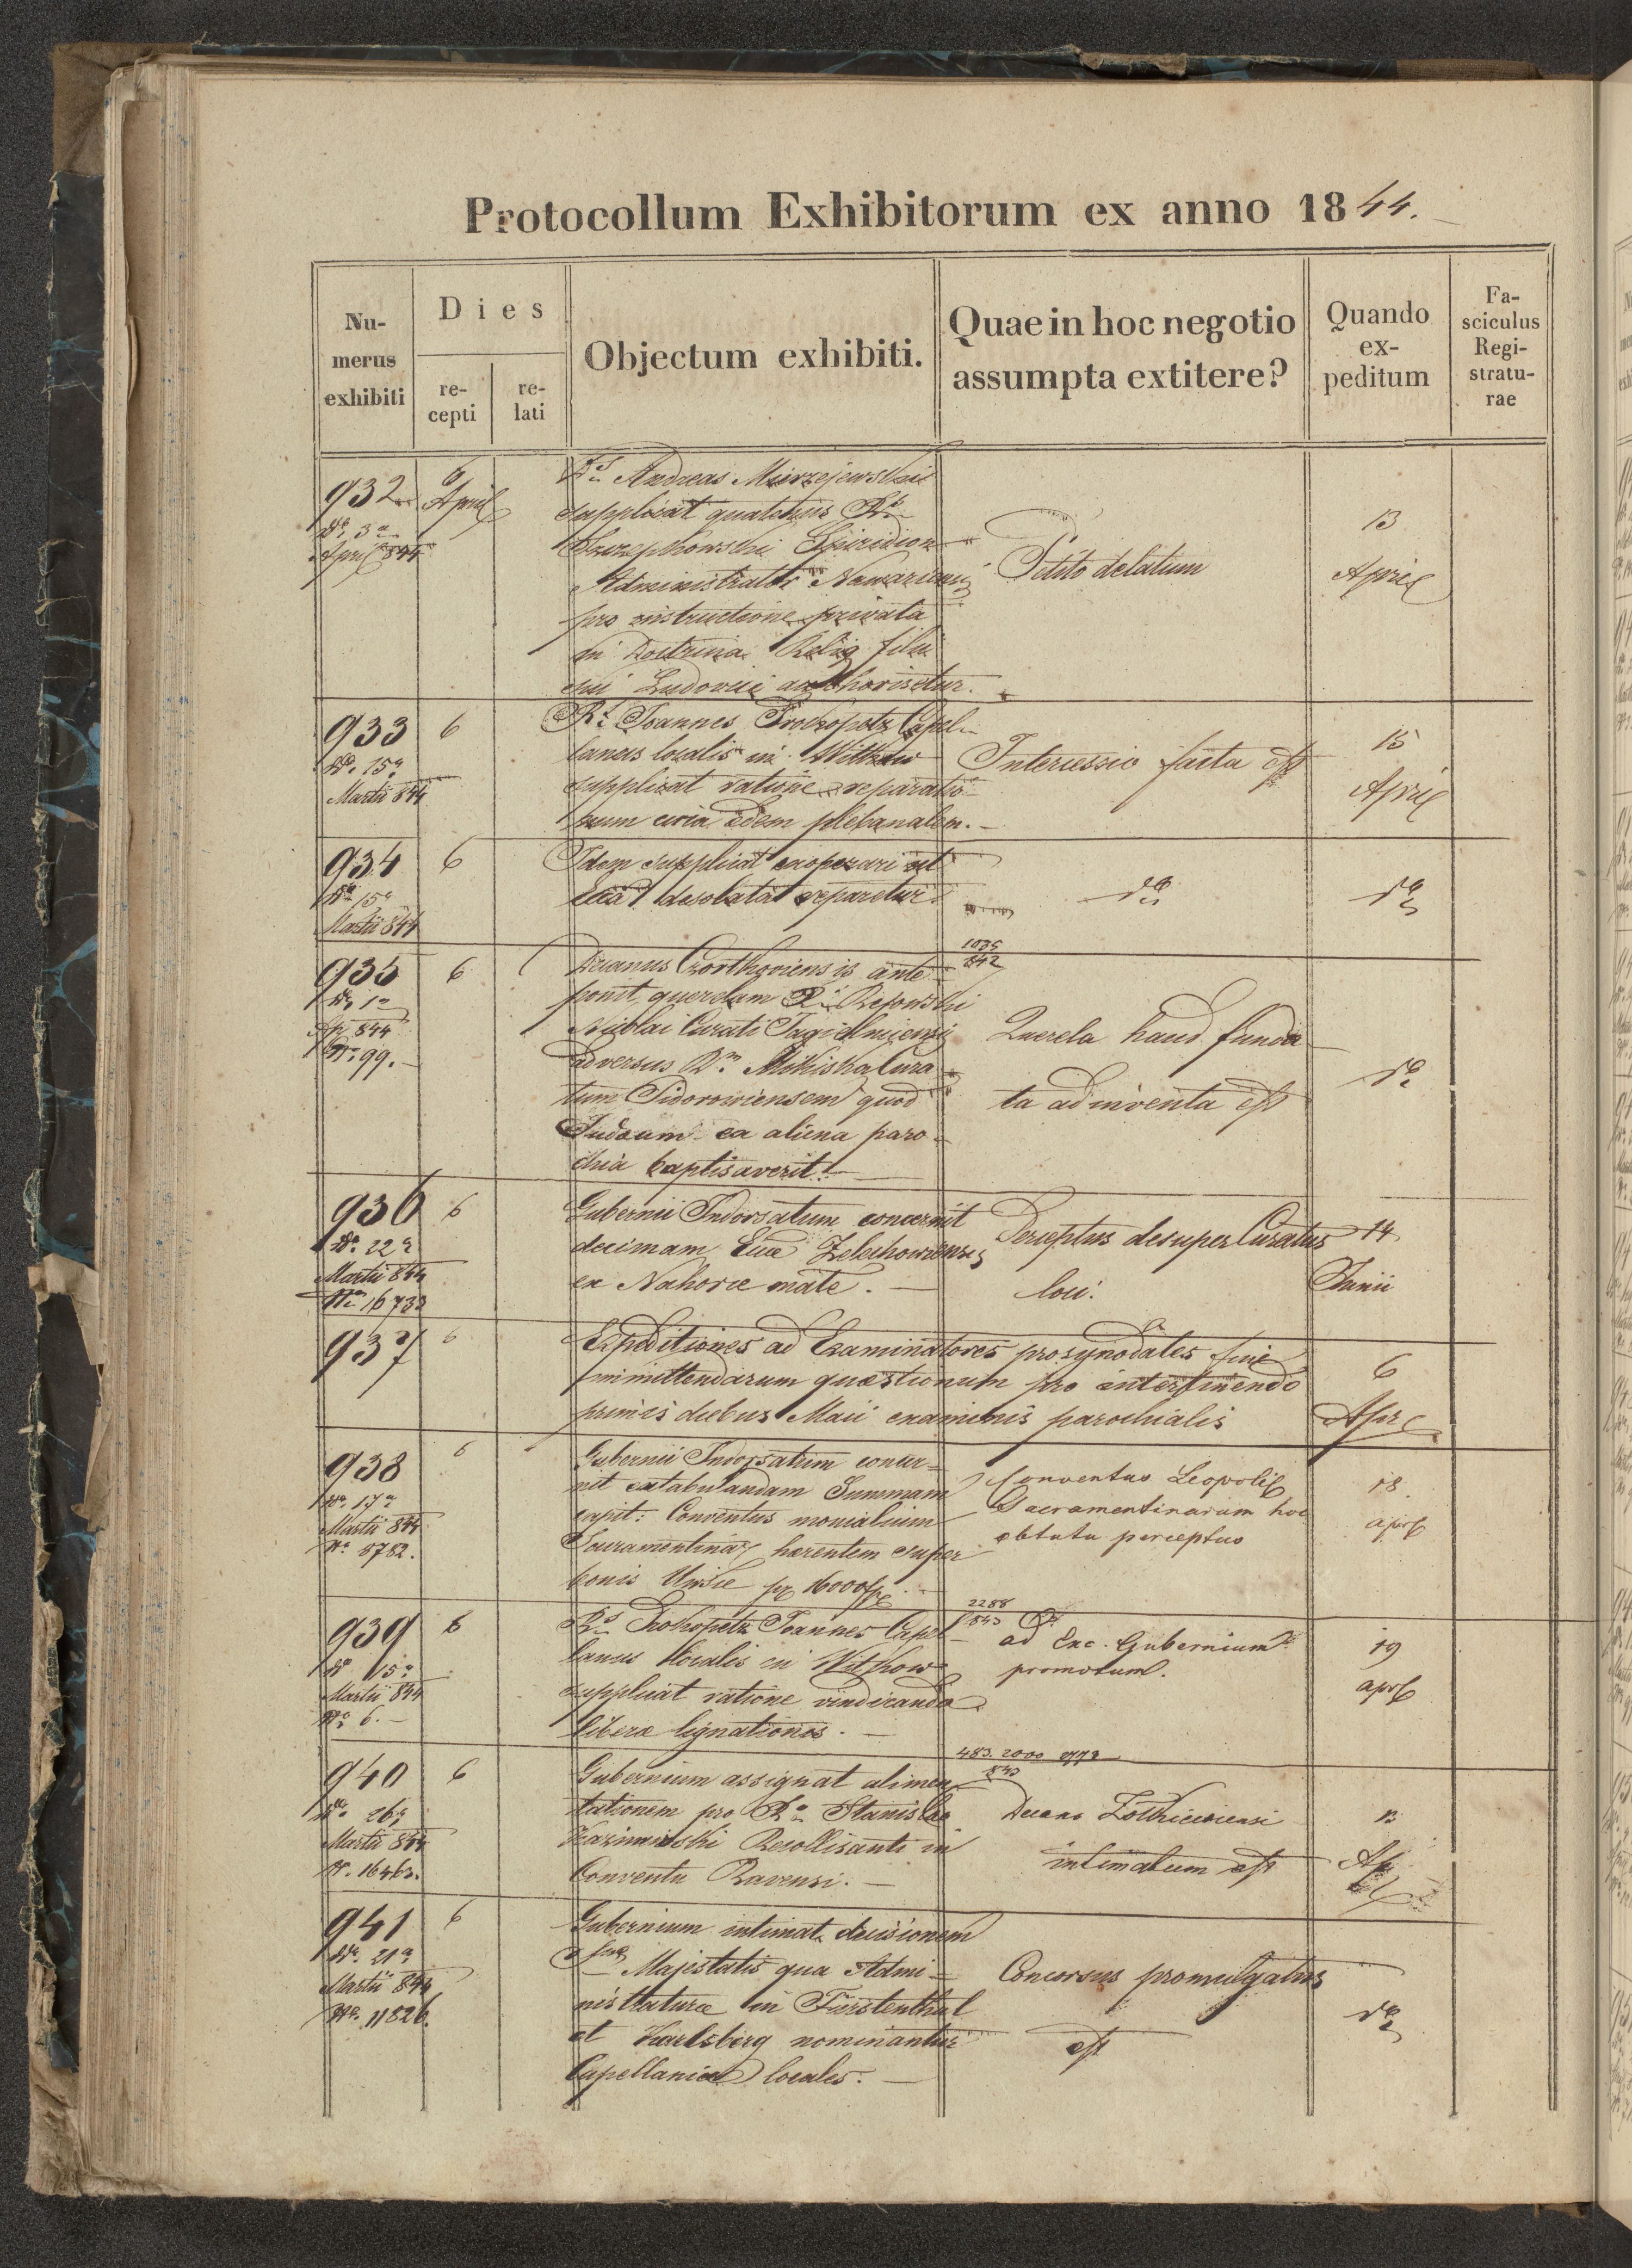 Protocollum Exhibitorum ex anno 1844.
Nu-
merus
exhibiti
Dies
re-
cepti
re-
lati
Objectum exhibiti.
Quae in hoc negotio
assumpta extitere?
Quando
ex-
peditum
Fa-
sciculus
Regi-
stratu-
rae
932
dto 3a
April 844
6
April
Ds Andreas Mierzejewski
supplicat quatenus Rs
Spiridion
Administrator Nawariensis
pro instructione privata
in Doctrina Relig. filii
sui Ludovici authorisetur.
Petito delatum
13
April
933
dto 15a
Martii 844
6
Rs Joannes Prokopetz Capel-
lanus localis in Witkow
supplicat ratione reparatio-
num circa aedem plebanalem.
Intercessio facta est
15
April
934
dto 15a
Martii 844
6
Idem supplicat exoperari ut
Ecca desolata reparetur.
dto
dto
935
dto 1a
Ap. 844
No 99.
6
Decanus Czortkoviensis ante-
ponit querelam Ri
Nicolai Curati Jagielnicensis
adversus Rm Mikiska Cura-
tum Sidoroviensem quod
Judaeam ex aliena paro-
chia baptisaverit.
1035
842
Querela haud funda-
ta adinventa est
dto
936
dto 22a
Martii 844
No 16733
6
Gubernii Indorsatum concernit
decimam Eccae Zelechoviensis
ex Nahorce mate.
Perceptus desuper Curatus
loci.
14
Junii
937
6
Expeditiones ad Examinatores prosynodales fine
immittendarum quaestionum pro
primis diebus Maii examinis parochialis
6
Apr
938
dto 17a
Martii 844
No 8782.
6
Gubernii Indorsatum concer-
nit extabulandam Summam
capit: Conventus monialium
Sacramentinar haerentem super
bonis pr 16000 fl
Conventus Leopoli
Sacramentinarum hoc
obtutu perceptus
18
April
939
dto 15a
Martii 844
No 6.
6
Rs Prokopetz Joannes Capel-
lanus localis in Witkow
supplicat ratione vindicanda
liberae lignationis.
2288
843
ad Exc. Gubernium
promotum.
19
April
940
dto 26a
Martii 844
N. 16463.
6
Gubernium assignat alimen-
tationem pro Ro Stanislao
Kazimirski Recollisanti in
Conventu Ravensi.
483. 2000
843
Decano Zolkieviensi
intimatum est
13
Ap
941
dto 21a
Martii 844
No 11826.
6
Gubernium intimat decisionem
Majestatis qua Admi-
nistraturae in Fürstenthal
et Karlsberg nominantur
Capellaniae locales.
Concursus promulgatus
est
dto